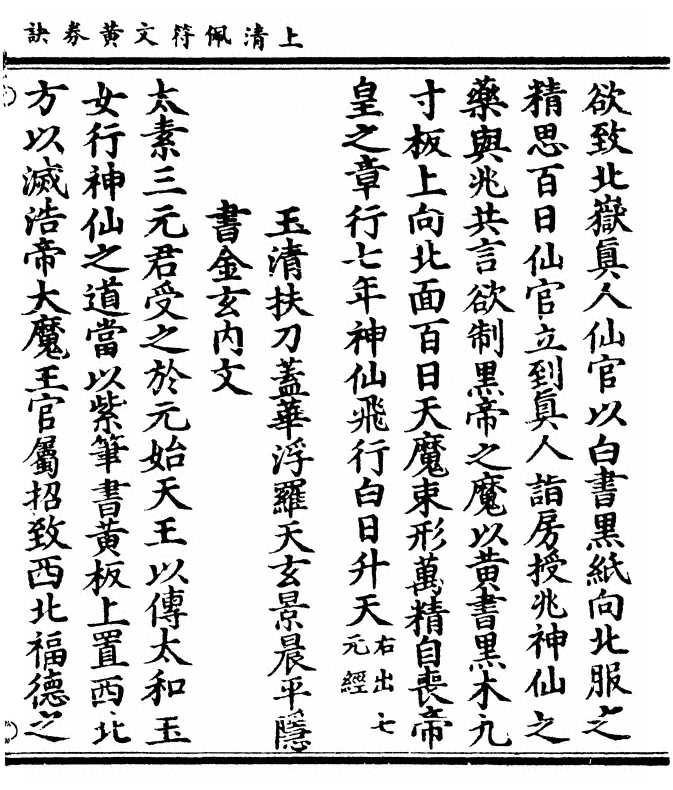 上清佩符文黄券訣
欲致北嶽眞人仙官以白書黒紙向北服之
精思百日仙官立到眞人詣房授兆神仙之
藥與兆共言欲制黒帝之魔以黄書黒木九
寸板上向北面百日天魔束形萬精自喪帝
皇之章行七年神仙飛行白日升天右出七
元經
玉清扶刀蓋華浮羅天玄景晨平隱
書金玄内文
太素三元君受之於元始天王以傳太和玉
女行神仙之道當以紫筆書黄板上置西北
方以滅浩帝大魔王官屬招致西北福德之